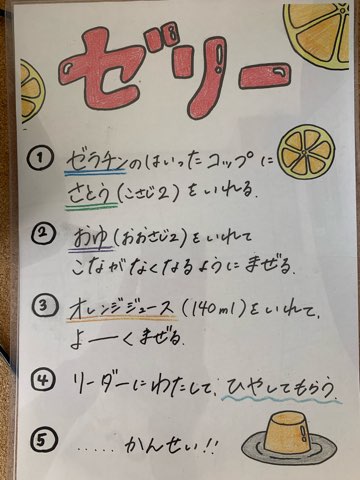 ゼリー
① ゼラチンのはいったコップに
さとう(こさじ2)をいれる.
② おゆ(おおさじ2)をいれて
こながなくなるようにまぜる.
③ オレンジジュース(140ml)をいれて、
よーーくまぜる.
④ リーダーにわたして、ひやしてもらう.
⑤ ..... かんせい!!